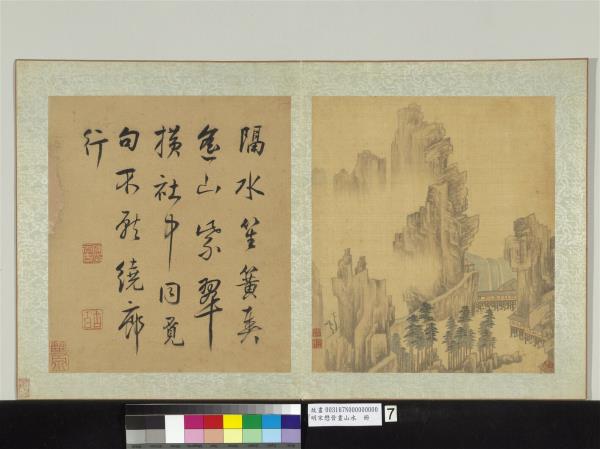 隔水笙簧奏
山紫翠
橫社中同覓
句不繞廊
行
故畫003187N000000000
明宋懋晉畫山水 冊
7